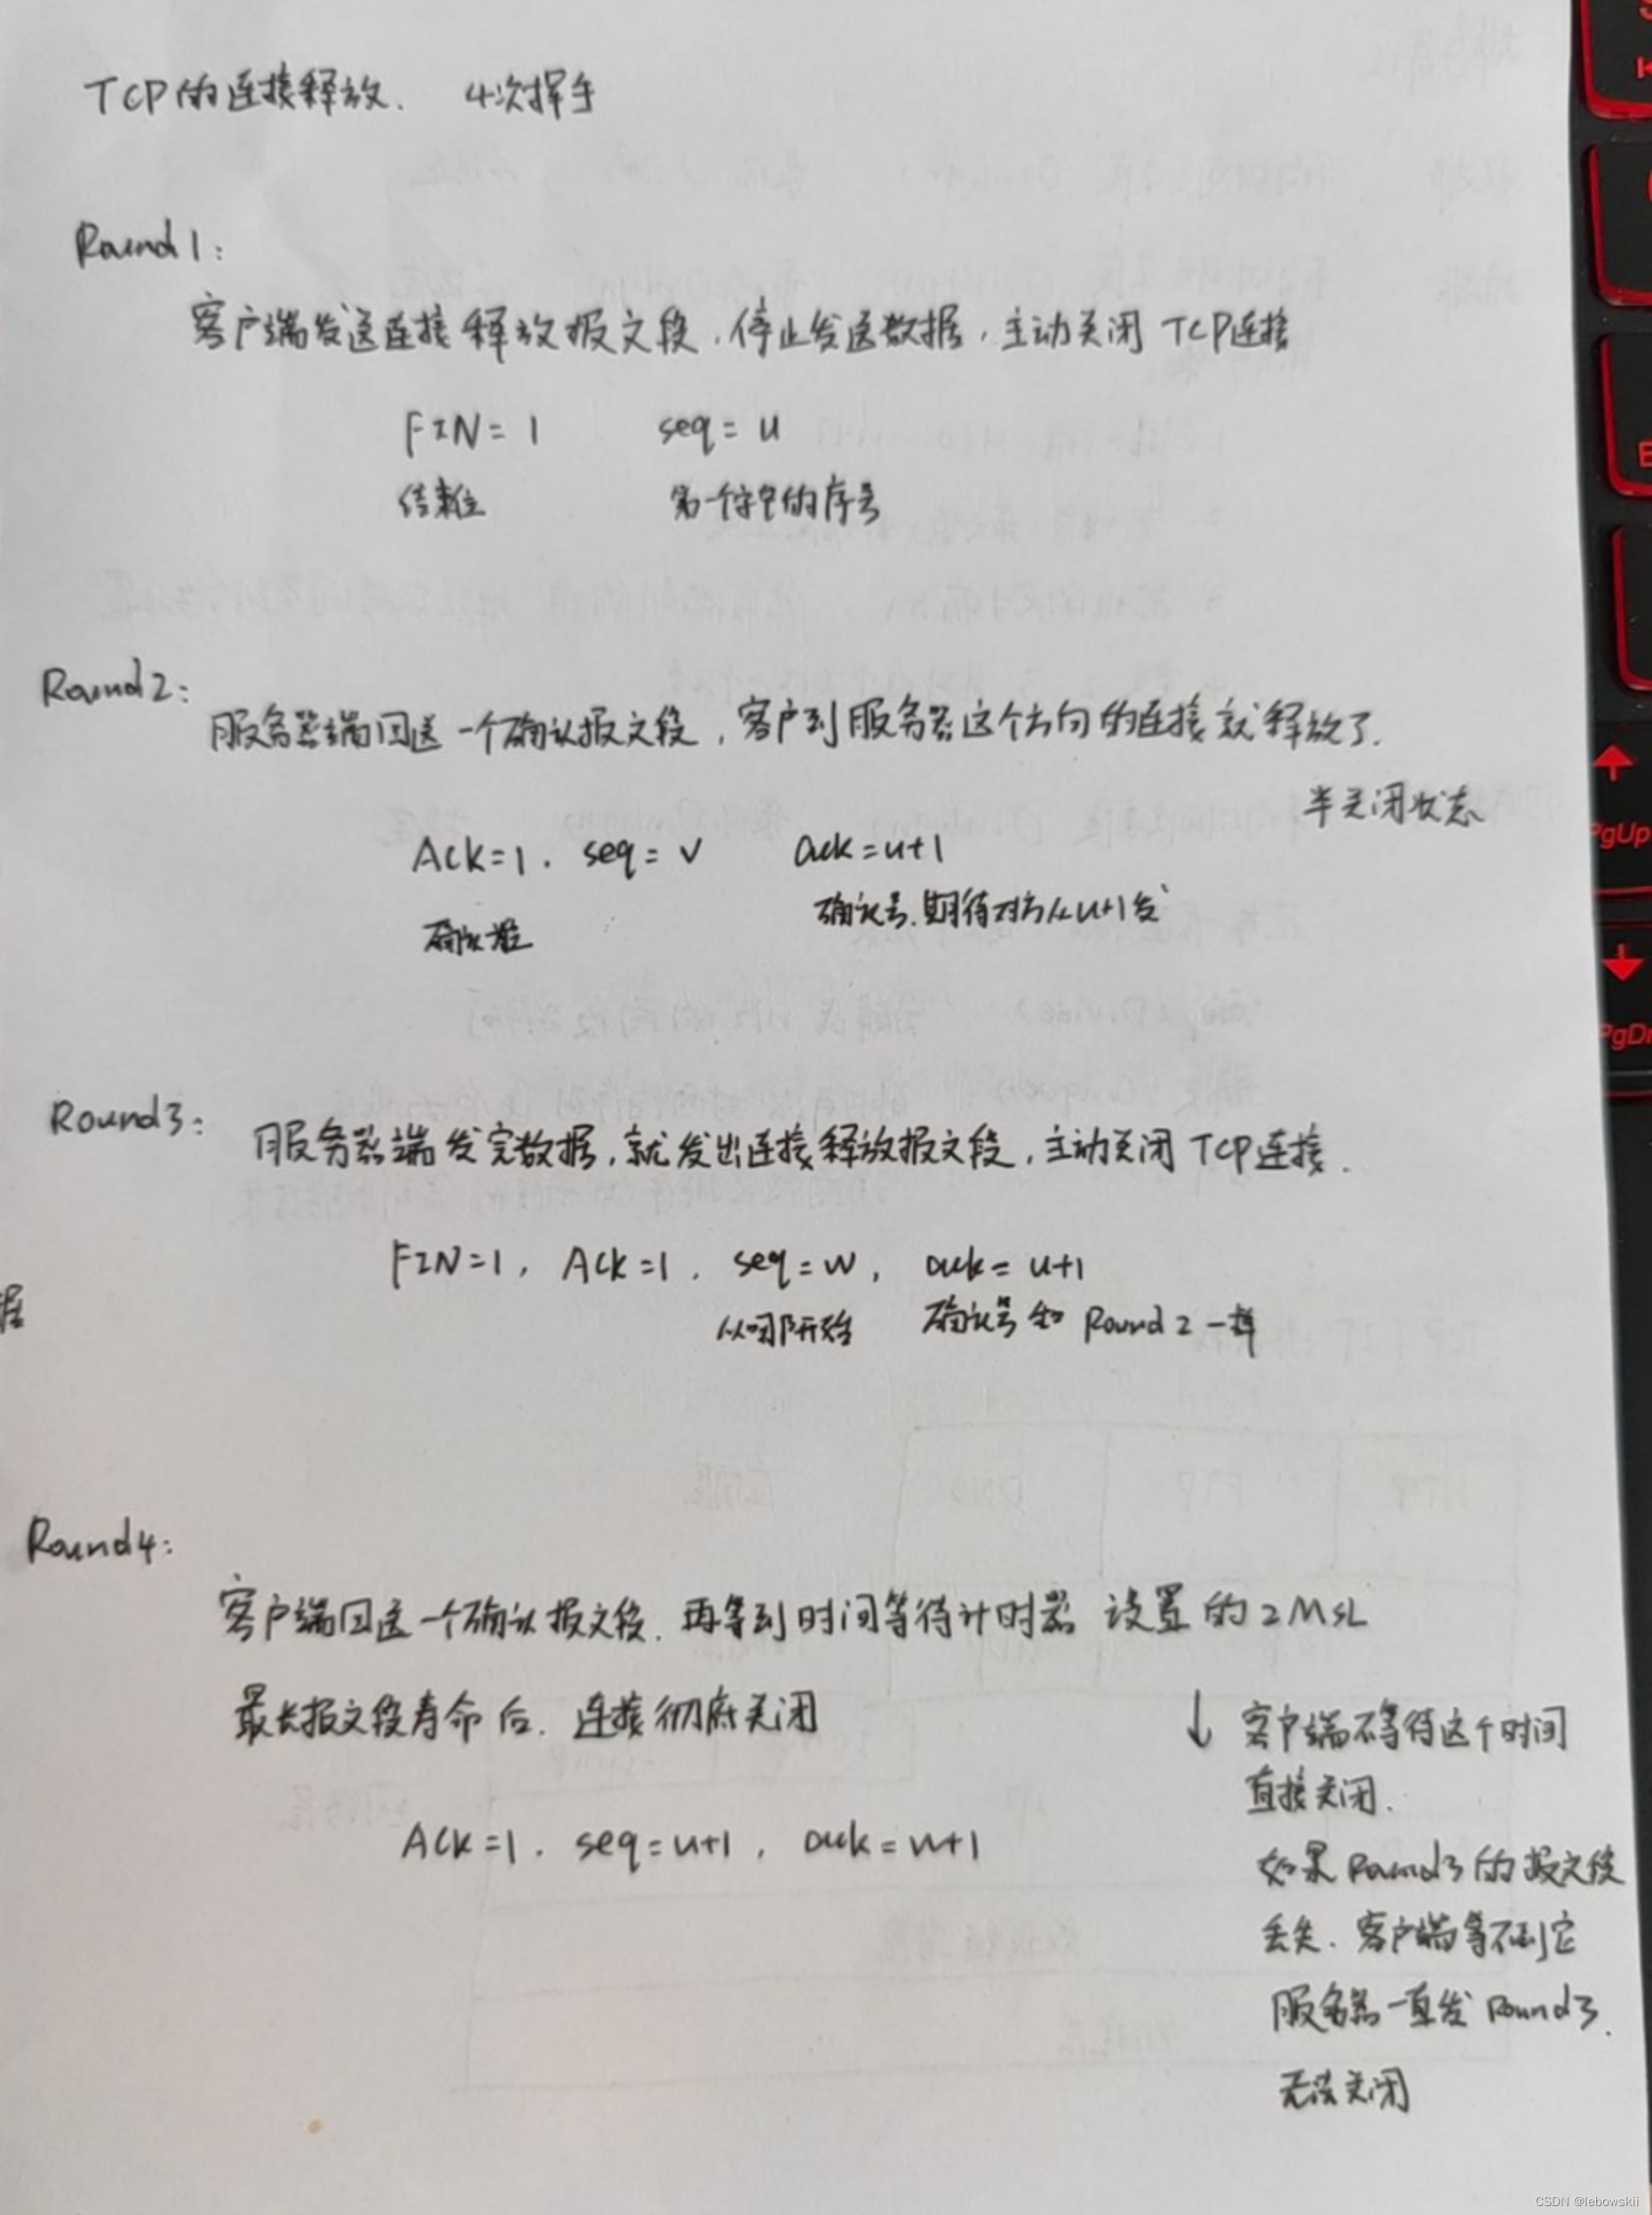 TCP的连接释放. 4次挥手
Round1:
客户端发送连接释放报文段,停止发送数据,主动关闭 TCP连接
FIN=1 seq=u
结束位 第一个字节的序号
Round2:
服务器端回送一个确认报文段,客户到服务器这个方向的连接就释放了.
半关闭状态
Ack=1. seq=v ack=u+1
确认位 确认号.期待对方从u+1发
Round3:
服务器端发完数据,就发出连接释放报文段,主动关闭 TCP连接.
FIN=1, Ack=1. seq=w, ack=u+1
开始 确认号和 Round2一样
据
Round4:
客户端回送一个确认报文段.再等到时间等待计时器 设置的2MSL
最长报文段寿命后. 连接彻底关闭
↓ 客户端不等待这个时间
直接关闭.
Ack=1. seq=u+1, ack=w+1
如果Round3的报文段
丢失.客户端等不到它
服务器一直发Round3.
无法关闭
PgUp
PgDn
CSDN @lebowskii